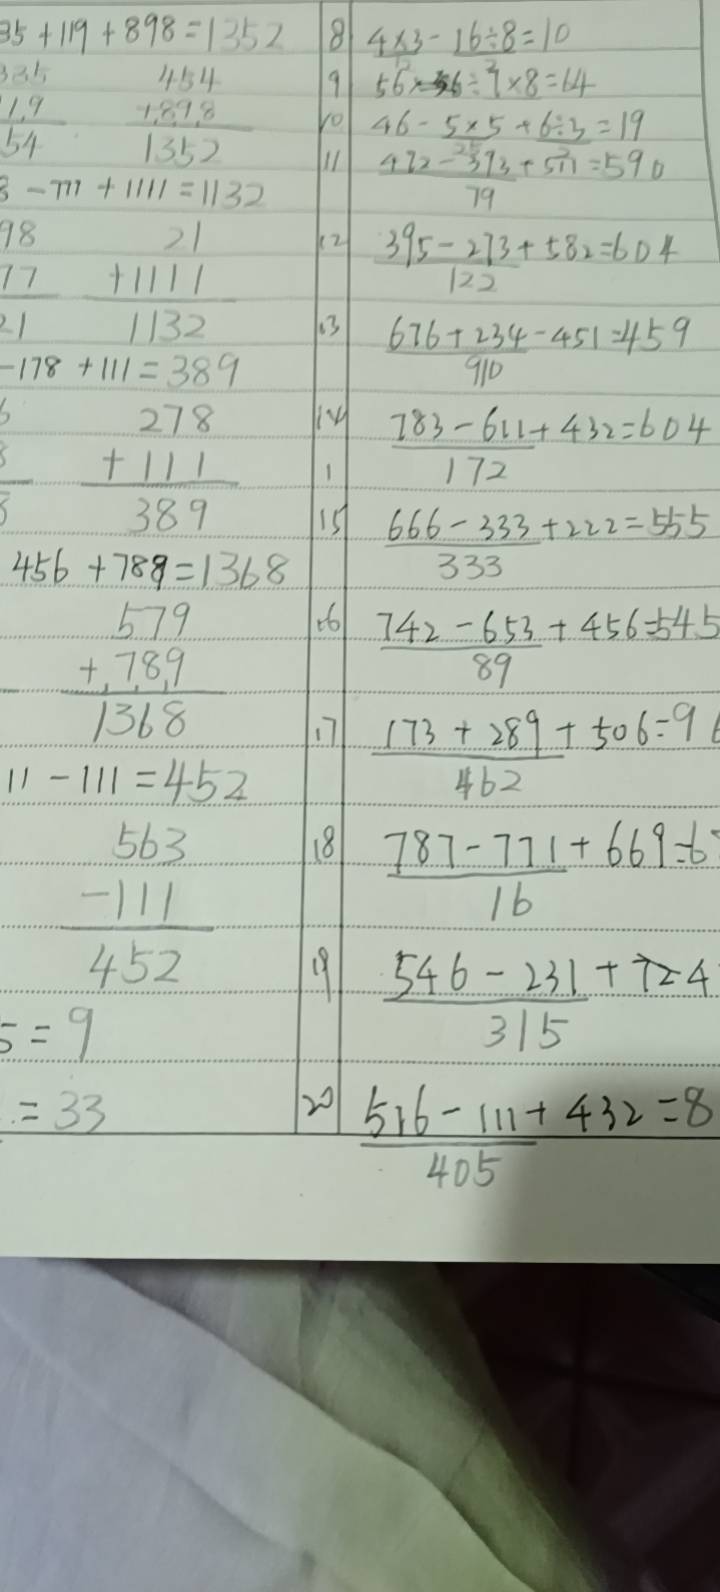 35+119+898=1352
335 454
119 +898
54 1352
-777+1111=1132
98 21
77 +1111
21 1132
-178+111=389
6 278
8 +111
8 389
456+789=1368
579
+789
1368
11-111=452
563
-111
452
5=9
=33
8 4×3-16÷8=10
12
9 ÷7×8=64
10 46-5×5+6÷3=19
25 2
11 472-393+511=590
79
12 395-273+582=604
122
13 676+234-451=459
910
14 783-611+432=604
1 172
15 666-333+222=555
333
16 742-653+456=545
89
17 173+289+506=96
462
18 787-771+669=6
16
19 546-231+724
315
20 516-111+432=8
405